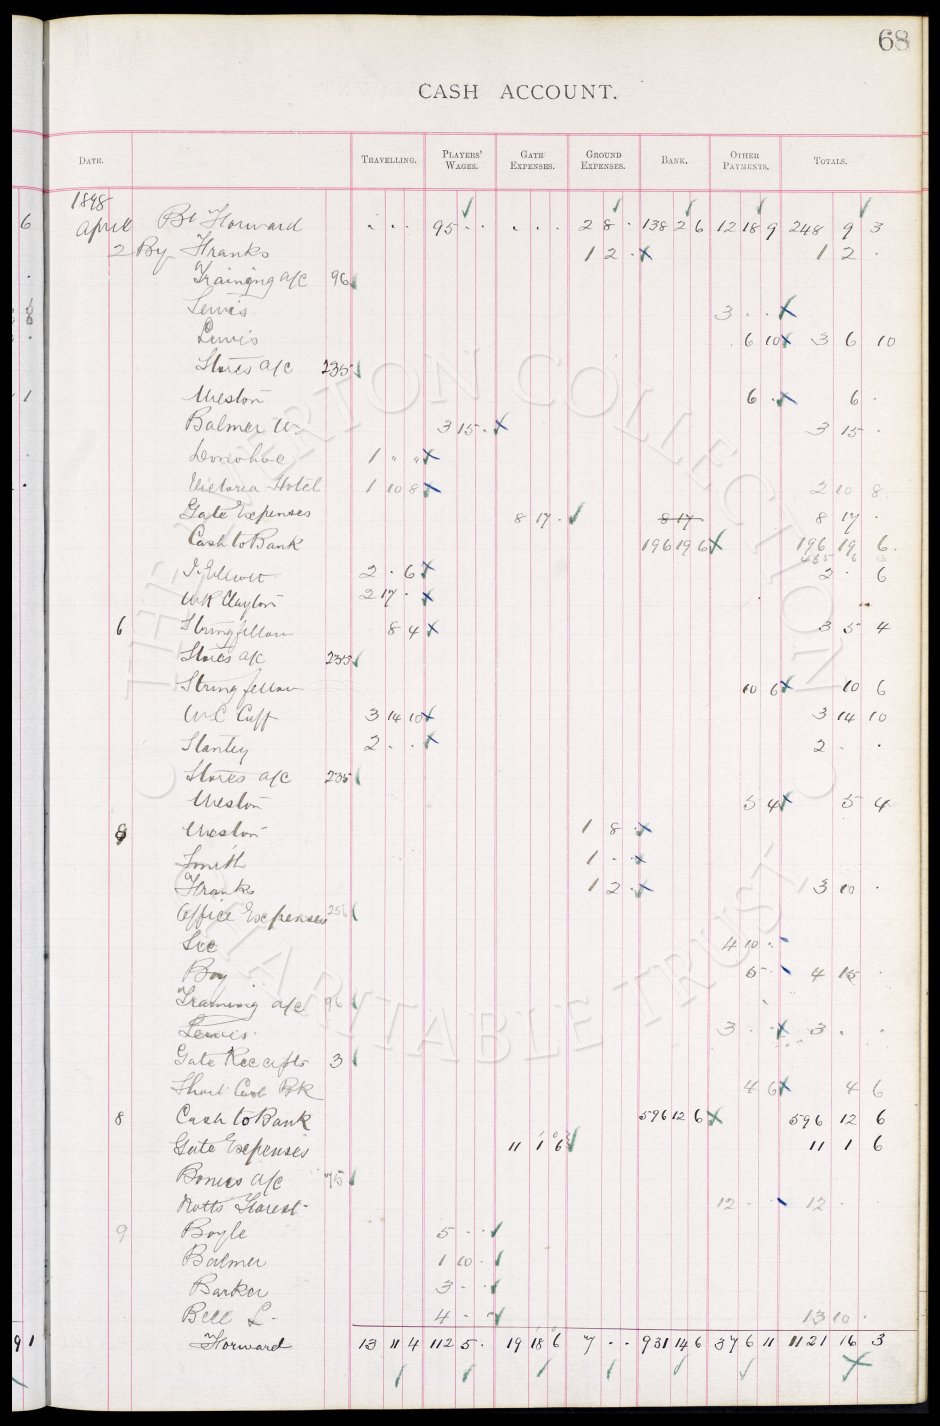 68
CASH ACCOUNT.
DATE. TRAVELLING. PLAYERS' WAGES. GATE EXPENSES. GROUND EXPENSES. BANK. OTHER PAYMENTS. TOTALS.
1898
April Bt Forward . . . 95 . . . . . 2 8 . 138 2 6 12 18 9 248 9 3
2 By Franks 1 2 . 1 2 .
Training a/c 96
Lewis 3 . .
Lewis 6 10 3 6 10
Stores a/c 235
Weston 6 . 6 .
Balmer W. 3 15 . 3 15 .
Donohoe 1 " "
Victoria Hotel 1 10 8 2 10 8
Gate Expenses 8 17 . 8 17 8 17 .
Cash to Bank 196 19 6 196 19 6
2 . 6 2 . 6
W R Clayton 2 17 .
6 Stringfellow 8 4 3 5 4
Stores a/c 235
Stringfellow 10 6 10 6
W C Cuff 3 14 10 3 14 10
Stanley 2 . . 2 . .
Stores a/c 235
Weston 5 4 5 4
8 Weston 1 8 .
Smith 1 . .
Franks 1 2 . 3 10 .
Office Expenses 256
Lee 4 10 .
Boy 5 . 4 15 .
Training a/c 96
Lewis 3 . . 3 . .
Gate Receipts 3
Short Cash Bk 4 6 4 6
8 Cash to Bank 596 12 6 596 12 6
Gate Expenses 11 1 6 11 1 6
Bonus a/c 75
Notts Forest 12 . . 12 . .
9 Boyle 5 . .
Balmer 1 10 .
Barker 3 . .
Bell L. 4 . . 13 10 .
Forward 13 11 4 112 5 . 19 18 6 7 . . 931 14 6 37 6 11 1121 16 3
THE EVERTON COLLECTION
CHARITABLE TRUST